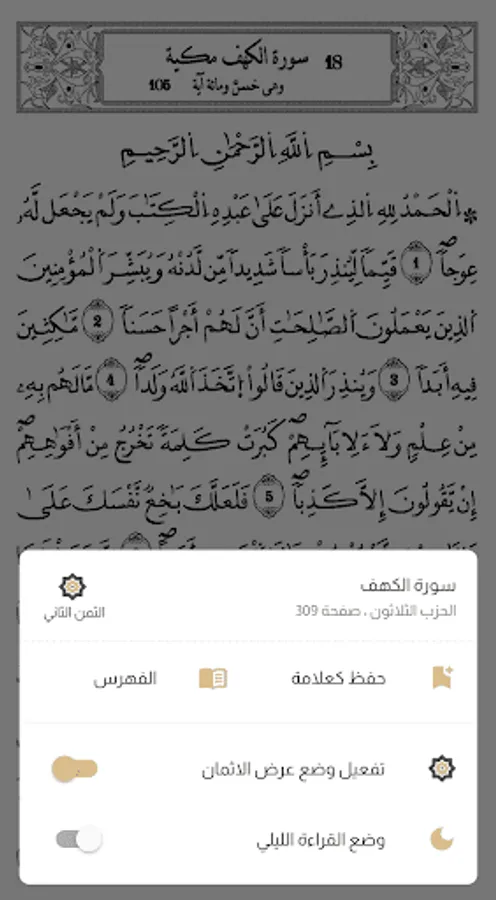 18 سورة الكهف مكية
وهي خمسٌ ومائة آية 105
بِسْمِ اِ۬للَّهِ اِ۬لرَّحْمَٰنِ اِ۬لرَّحِيمِ
* اَ۬لْحَمْدُ لِلهِ اِ۬لذِےٓ أَنزَلَ عَلَىٰ عَبْدِهِ اِ۬لْكِتَٰبَ وَلَمْ يَجْعَل لَّهُۥ
عِوَجاٗۖ 1 قَيِّماٗ لِّيُنذِرَ بَأْساٗ شَدِيداٗ مِّن لَّدُنْهُ وَيُبَشِّرَ اَ۬لْمُؤْمِنِينَ
اَ۬لذِينَ يَعْمَلُونَ اَ۬لصَّٰلِحَٰتِ أَنَّ لَهُمْ أَجْراً حَسَناٗ 2 مَّٰكِثِينَ
فِيهِ أَبَداٗ 3 وَيُنذِرَ اَ۬لذِينَ قَالُواْ اُ۪تَّخَذَ اَ۬للَّهُ وَلَداٗۖ 4 مَّا لَهُم بِهِۦ
مِنْ عِلْمٖ وَلَا ءَلِابَآئِهِمْۖ كَبُرَتْ كَلِمَةٗ تَخْرُجُ مِنْ أَفْوَٰهِهِمْۖ
إِنْ يَّقُولُونَ إِلَّا كَذِباٗۖ 5 فَلَعَلَّكَ بَٰخِعٞ نَّفْسَكَ عَلَىٰٓ
سورة الكهف
الحزب الثلاثون ، صفحة 309
الثمن الثاني
حفظ كعلامة
الفهرس
تفعيل وضع عرض الاثمان
وضع القراءة الليلي